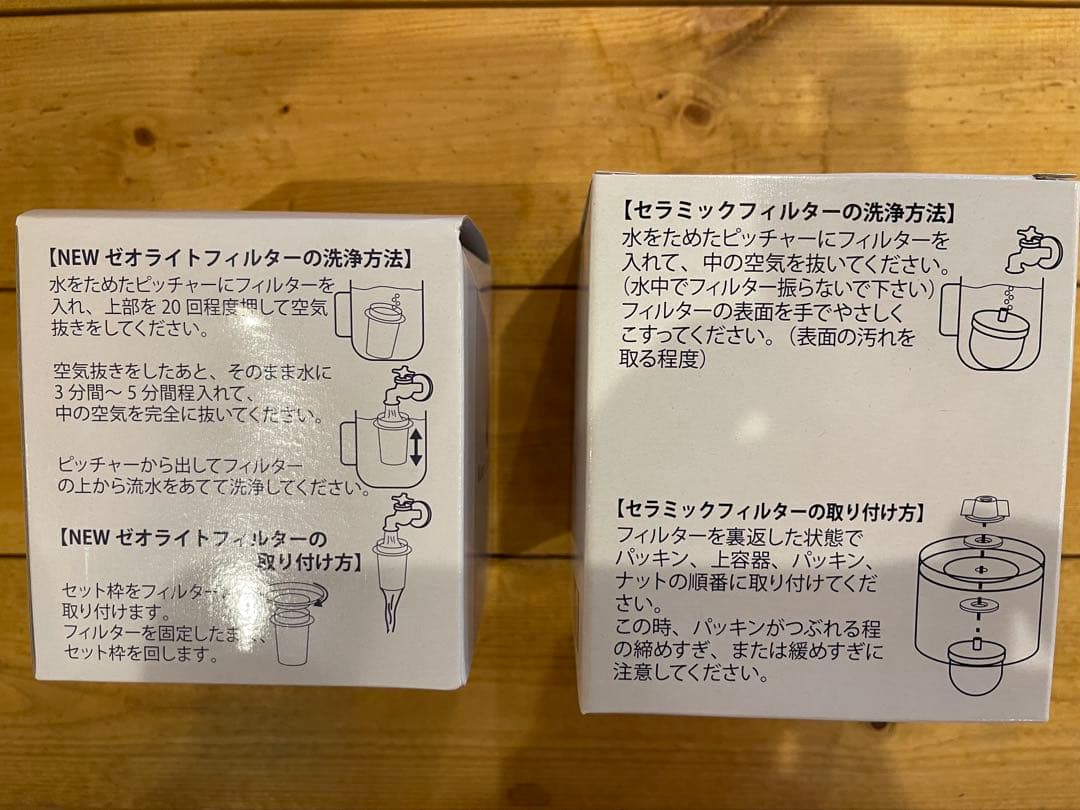 【NEW ゼオライトフィルターの洗浄方法】
水をためたピッチャーにフィルターを
入れ、上部を 20 回程度押して空気
抜きをしてください。
空気抜きをしたあと、そのまま水に
3 分間〜 5 分間程入れて、
中の空気を完全に抜いてください。
ピッチャーから出してフィルター
の上から流水をあてて洗浄してください。
【NEW ゼオライトフィルターの
取り付け方】
セット枠をフィルター
取り付けます。
フィルターを固定したまま、
セット枠を回します。
【セラミックフィルターの洗浄方法】
水をためたピッチャーにフィルターを
入れて、中の空気を抜いてください。
（水中でフィルター振らないで下さい）
フィルターの表面を手でやさしく
こすってください。（表面の汚れを
取る程度）
【セラミックフィルターの取り付け方】
フィルターを裏返した状態で
パッキン、上容器、パッキン、
ナットの順番に取り付けてくだ
さい。
この時、パッキンがつぶれる程
の締めすぎ、または緩めすぎに
注意してください。